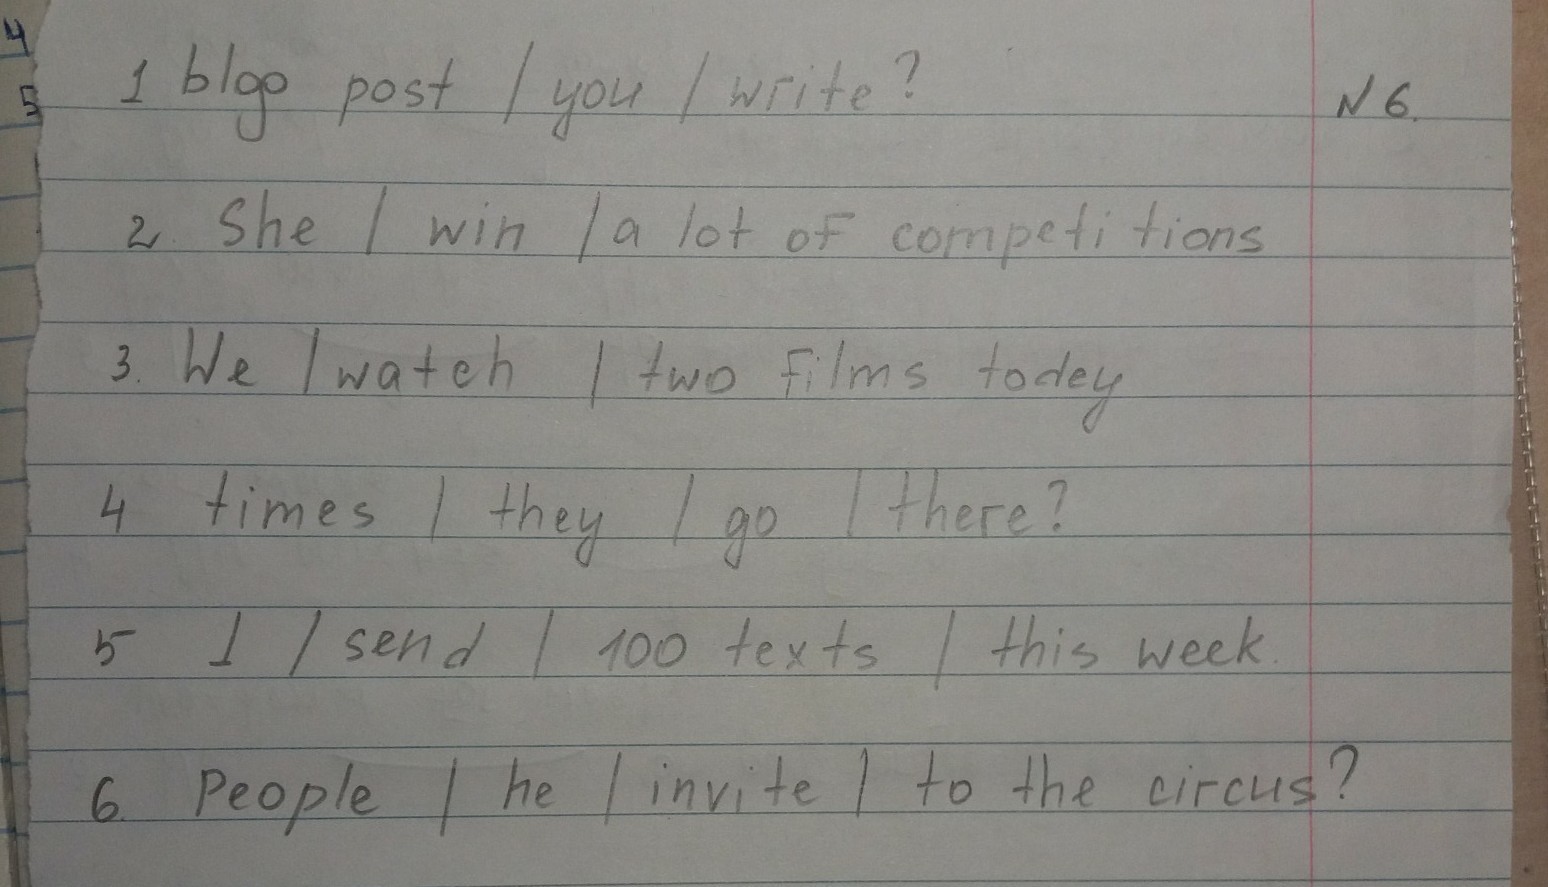 4
5
1 blgo post / you / write? N 6.
2. She / win / a lot of competitions
3. We / watch / two films todey
4 times / they / go / there?
5 I / send / 100 texts / this week.
6. People / he / invite / to the circus?